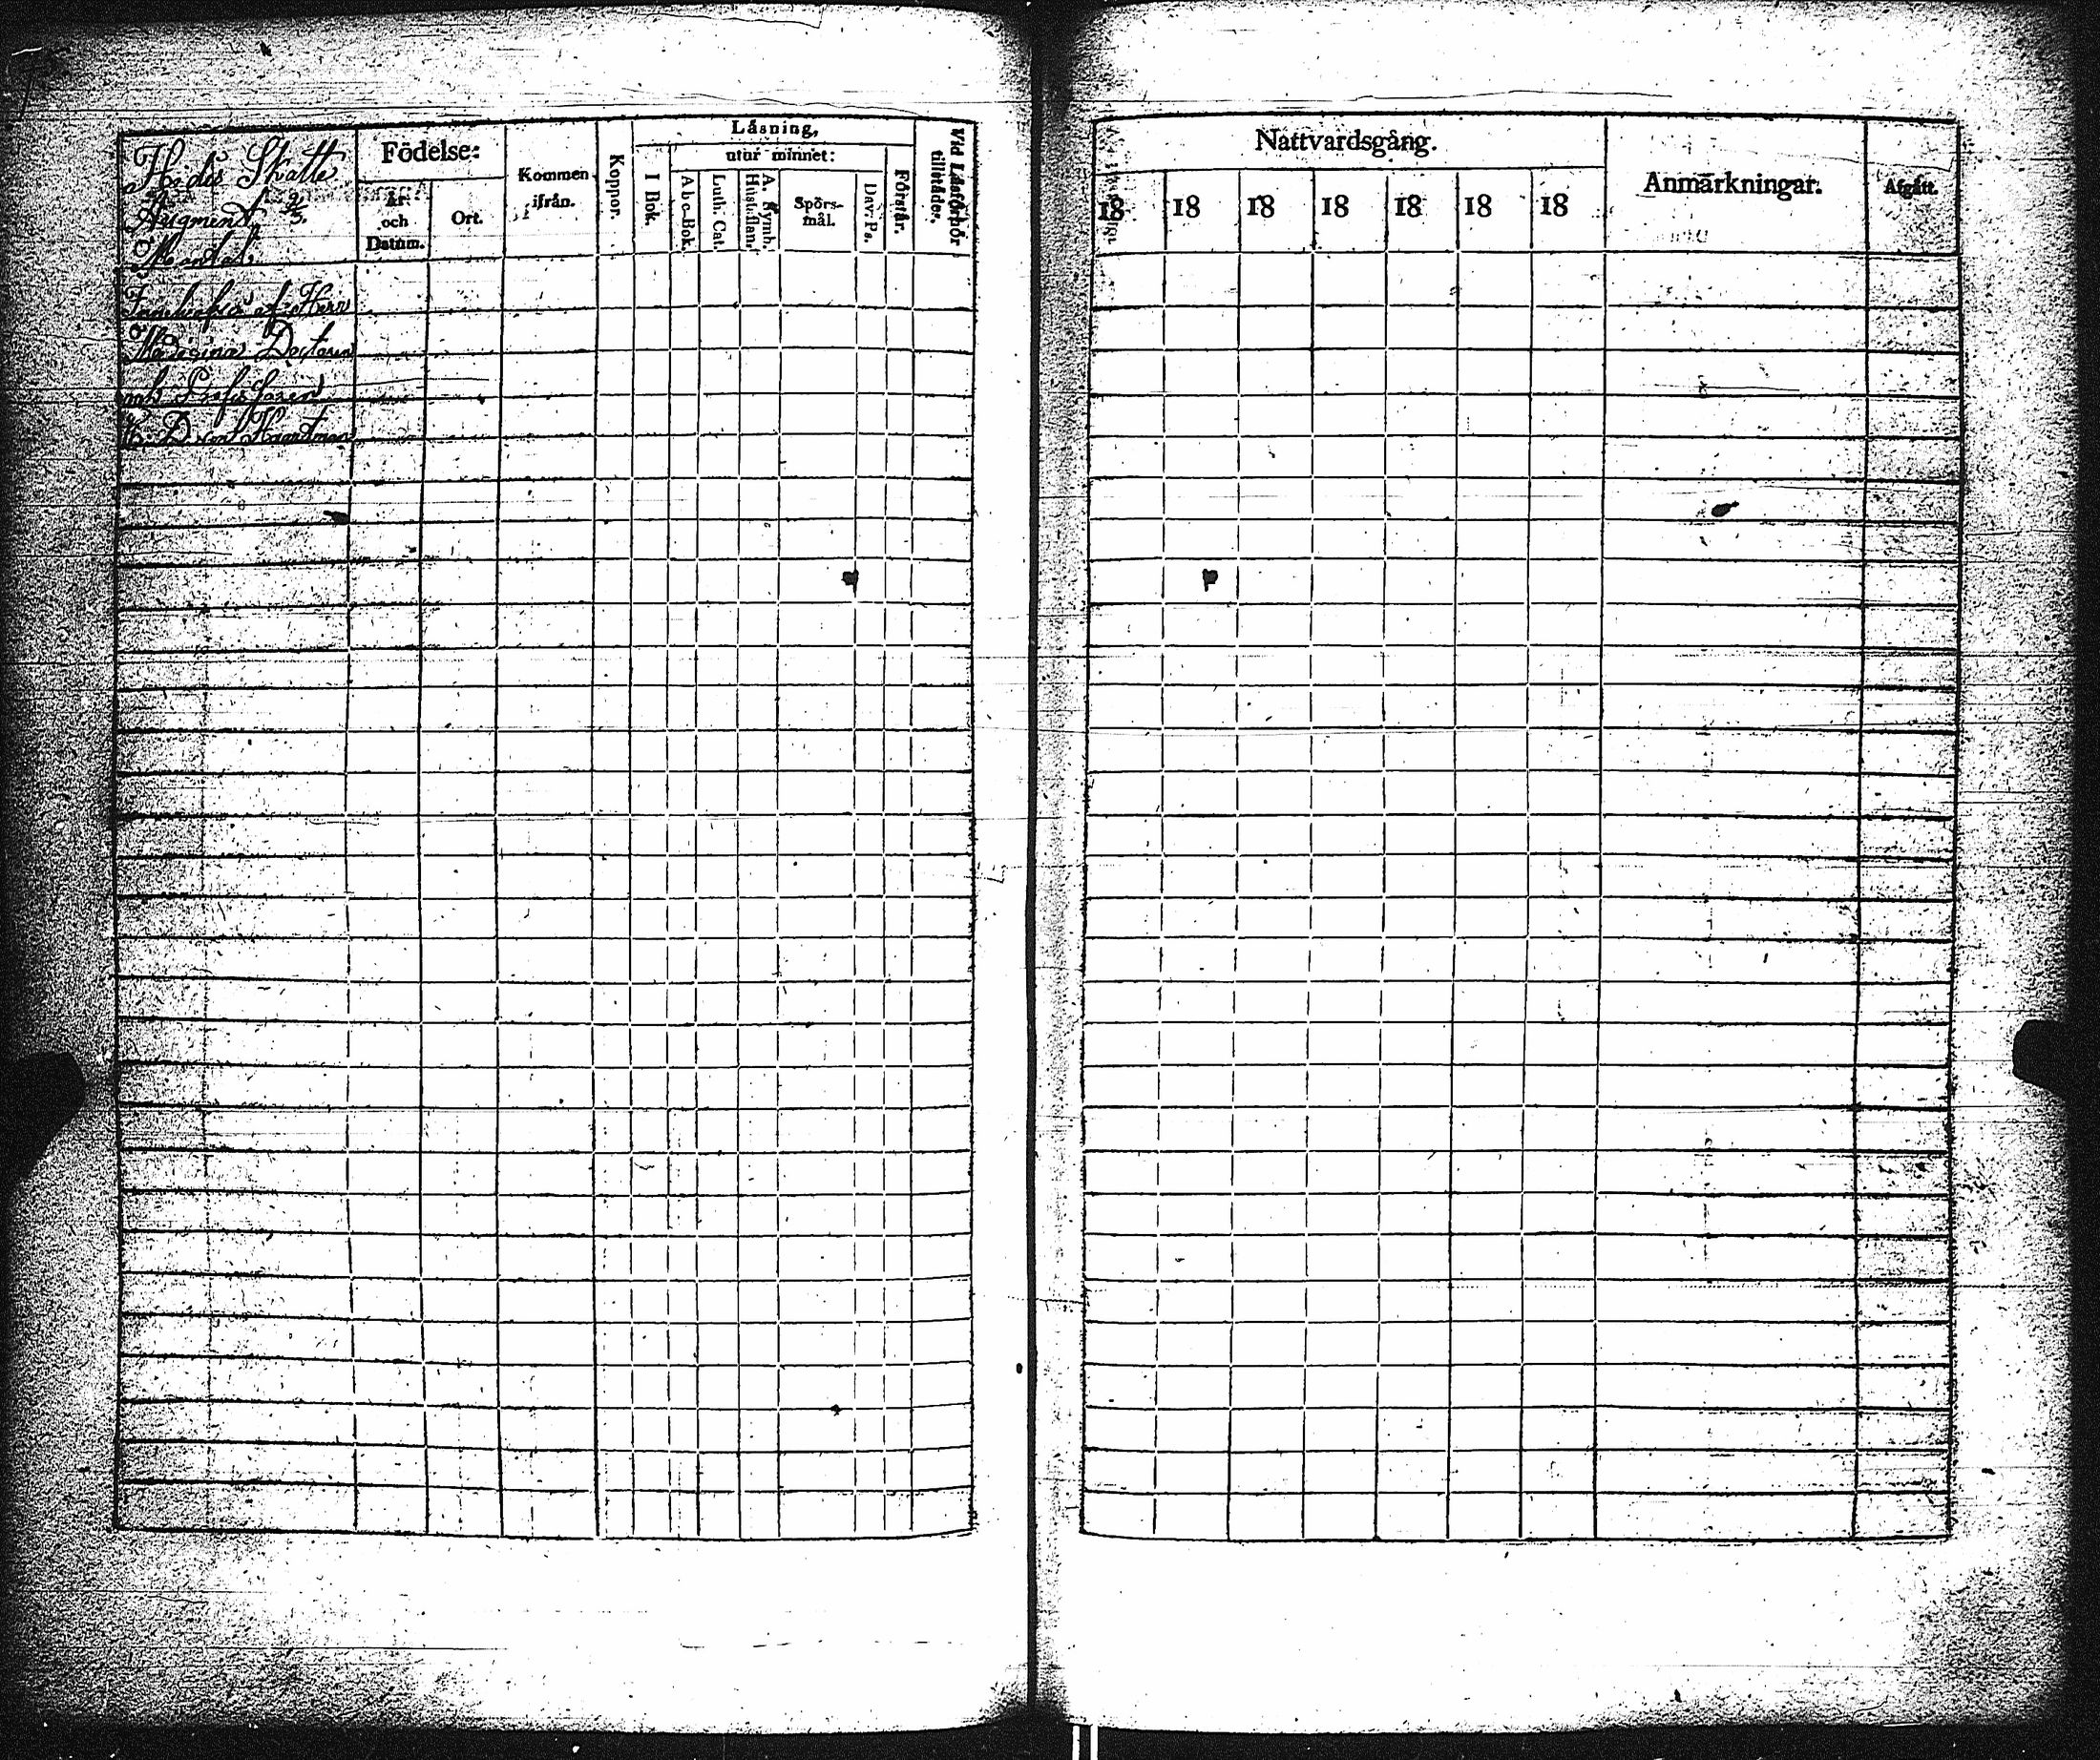 Hedis Skatte
Augment 2/3.
Mantal.
Födelse:
År och Datum.
Ort.
Kommen ifrån.
Koppor.
Läsning,
I Bok.
utur minnet:
Abc-Bok.
Luth. Cat.
A. Symb. Hust.
Spörs-mål.
Dav. Ps.
Förstår.
Vid Läsförhör tillstädes.
Innehafves af Herr
Medicinæ Doctoren
och Professoren
von Haartman
Nattvardsgång.
18 18 18 18 18 18 18
Anmärkningar.
Afgått.